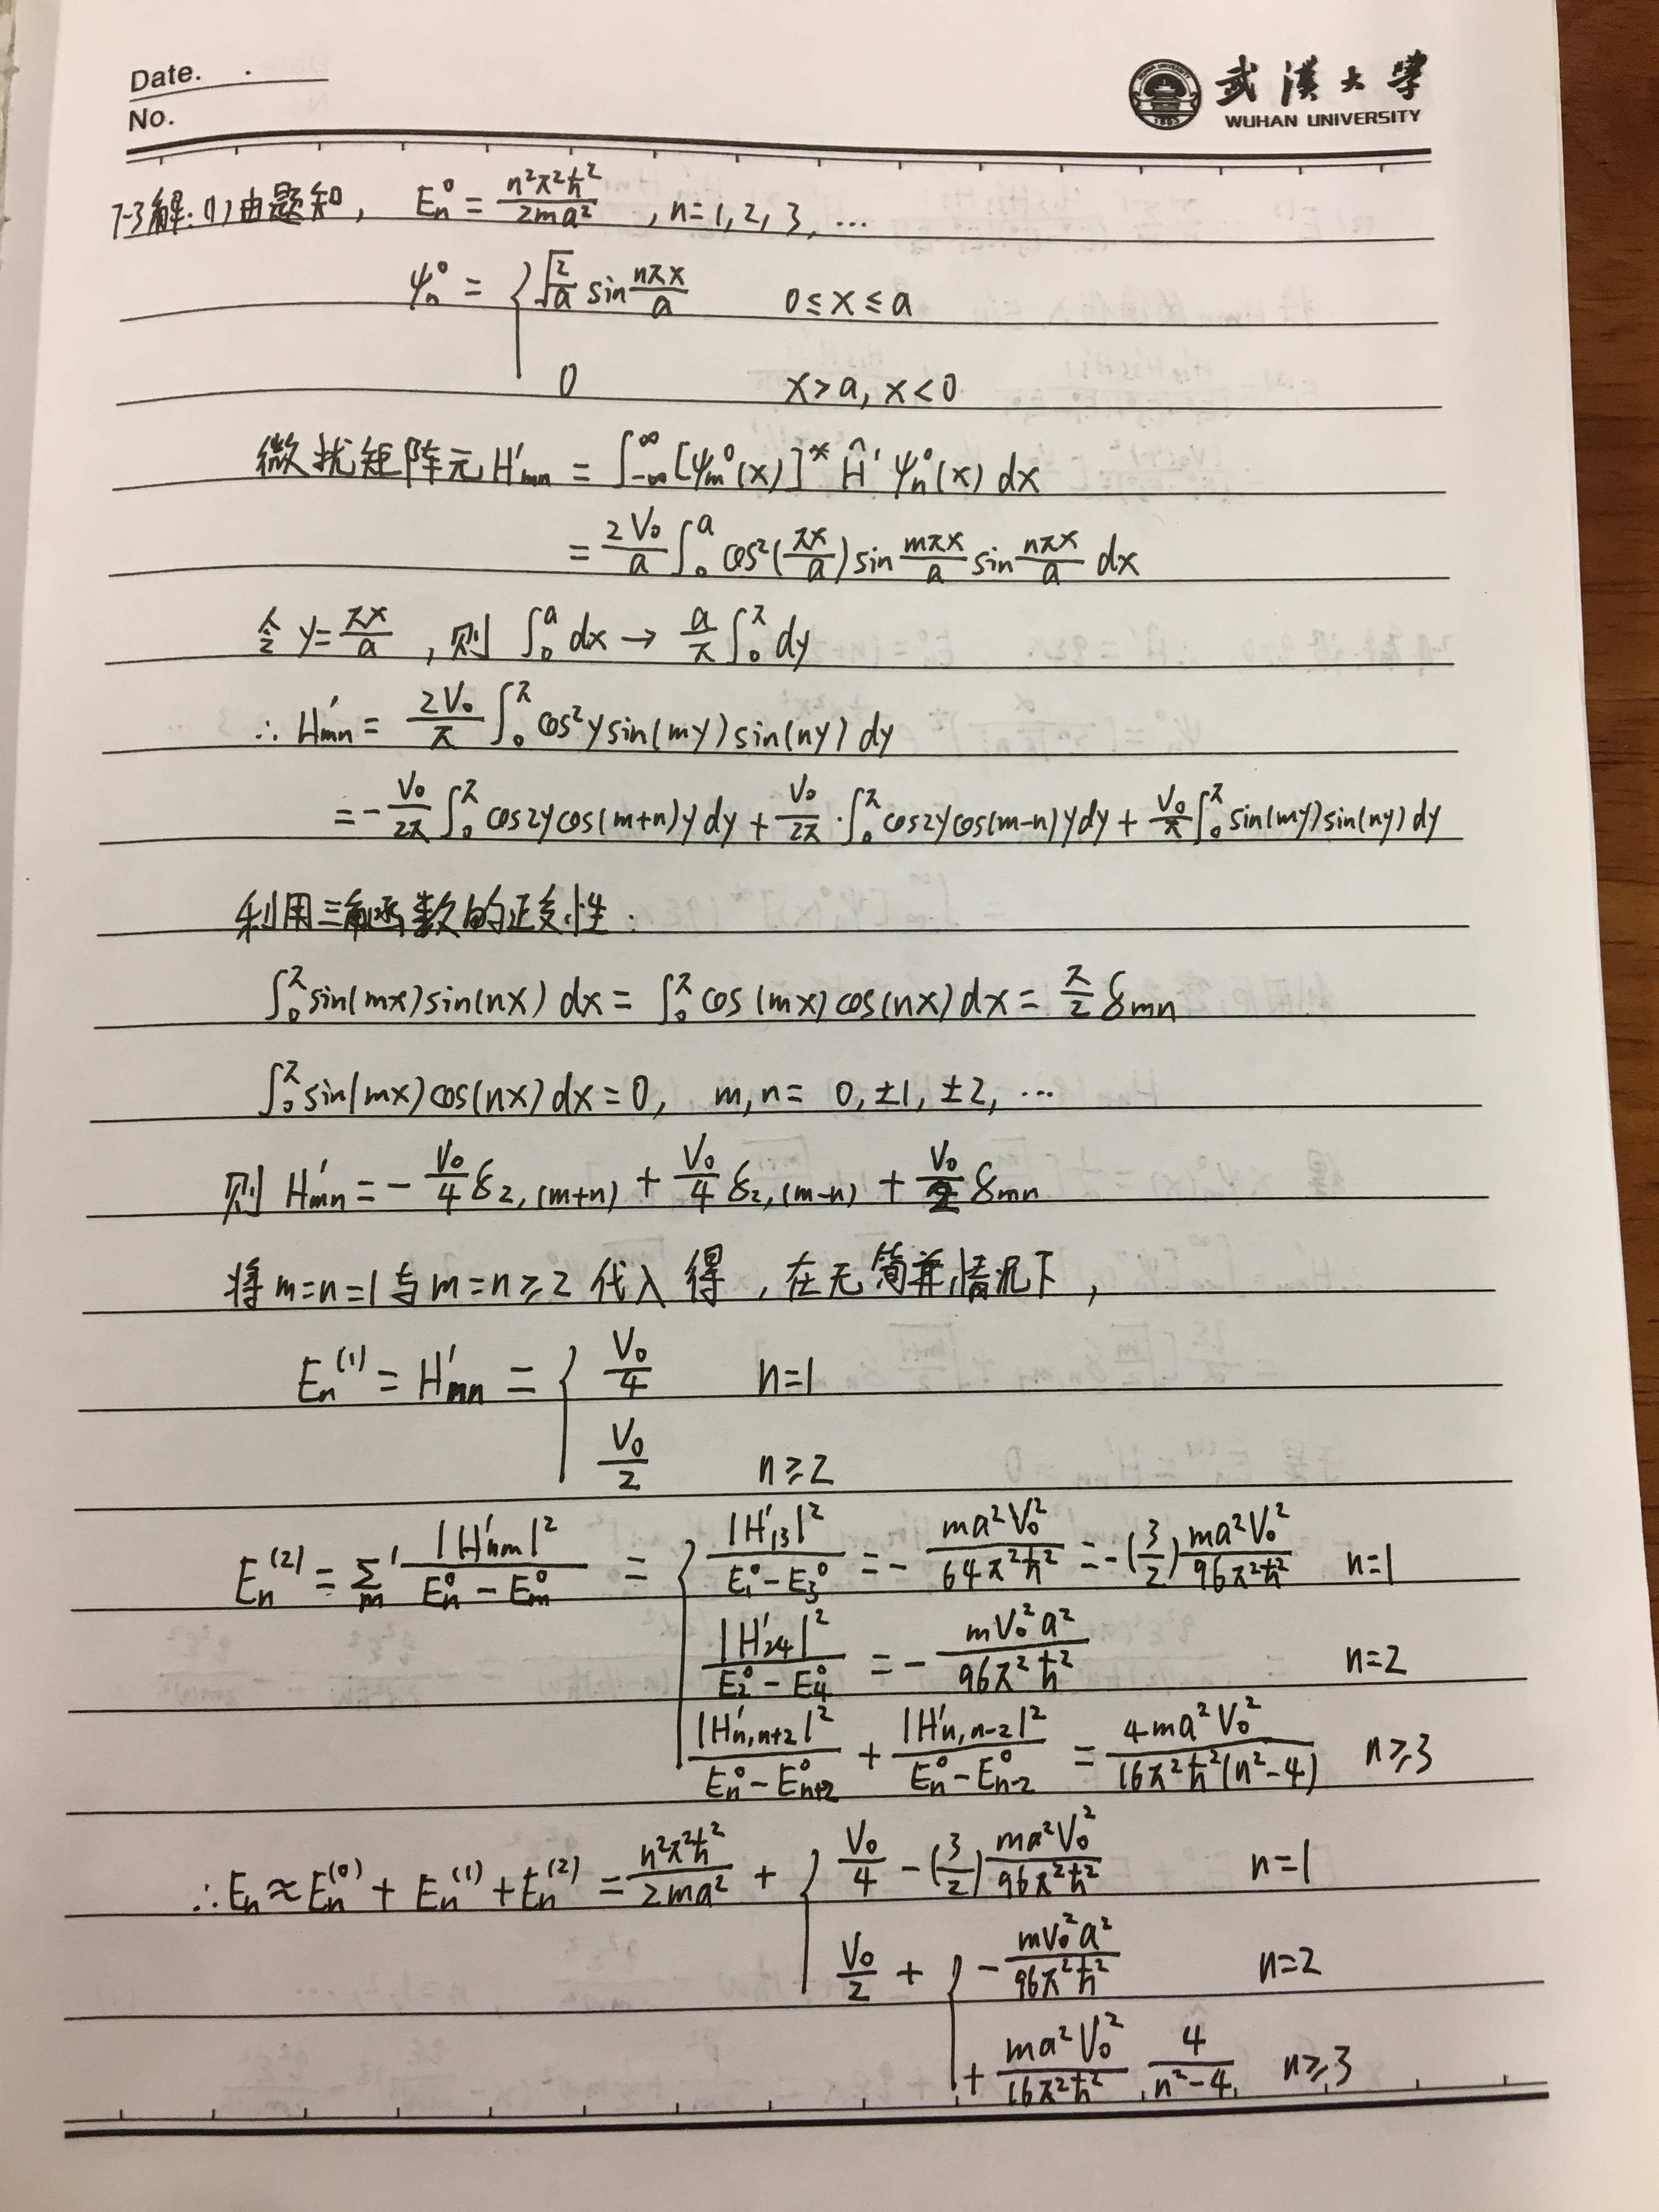 Date. .
No.
武汉大学
WUHAN UNIVERSITY
7-3解:(1)由题知, Eₙ⁰ = n²π²ħ²/2ma² , n=1, 2, 3, …
ψₙ⁰ = { √(2/a) sin nπx/a 0≤x≤a
0 x>a, x<0
微扰矩阵元H'ₘₙ = ∫_{-∞}^{∞} [ψₘ⁰(x)]* Ĥ' ψₙ⁰(x) dx
= 2V₀/a ∫₀^a cos²(πx/a) sin mπx/a sin nπx/a dx
令 y = πx/a , 则 ∫₀^a dx → a/π ∫₀^π dy
∴ H'ₘₙ = 2V₀/π ∫₀^π cos²y sin(my) sin(ny) dy
= -V₀/2π ∫₀^π cos2y cos(m+n)y dy + V₀/2π · ∫₀^π cos2y cos(m-n)y dy + V₀/π ∫₀^π sin(my) sin(ny) dy
利用三角函数的正交性:
∫₀^π sin(mx) sin(nx) dx = ∫₀^π cos(mx) cos(nx) dx = π/2 δₘₙ
∫₀^π sin(mx) cos(nx) dx = 0, m, n = 0, ±1, ±2, …
则 H'ₘₙ = -V₀/4 δ₂,₍ₘ₊ₙ₎ + V₀/4 δ₂,₍ₘ₋ₙ₎ + V₀/2 δₘₙ
将 m=n=1 与 m=n≥2 代入得 , 在无简并情况下 ,
Eₙ⁽¹⁾ = H'ₘₙ = { V₀/4 n=1
V₀/2 n≥2
Eₙ⁽²⁾ = Σ'ₘ |H'ₙₘ|²/(Eₙ⁰ - Eₘ⁰) = { |H'₁₃|²/(E₁⁰ - E₃⁰) = - ma²V₀²/64π²ħ² = -(3/2) ma²V₀²/96π²ħ² n=1
|H'₂₄|²/(E₂⁰ - E₄⁰) = - mV₀²a²/96π²ħ² n=2
|H'ₙ,ₙ₊₂|²/(Eₙ⁰ - Eₙ₊₂⁰) + |H'ₙ,ₙ₋₂|²/(Eₙ⁰ - Eₙ₋₂⁰) = 4ma²V₀²/16π²ħ²(n²-4) n≥3
∴ Eₙ ≈ Eₙ⁽⁰⁾ + Eₙ⁽¹⁾ + Eₙ⁽²⁾ = n²π²ħ²/2ma² + { V₀/4 - (3/2) ma²V₀²/96π²ħ² n=1
V₀/2 + { - mV₀²a²/96π²ħ² n=2
+ ma²V₀²/16π²ħ² 4/(n²-4) n≥3